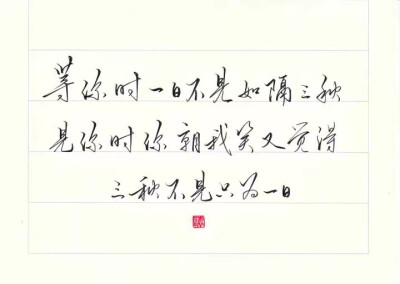 等你时一日不见如隔三秋
见你时你朝我笑又觉得
三秋不见只为一日